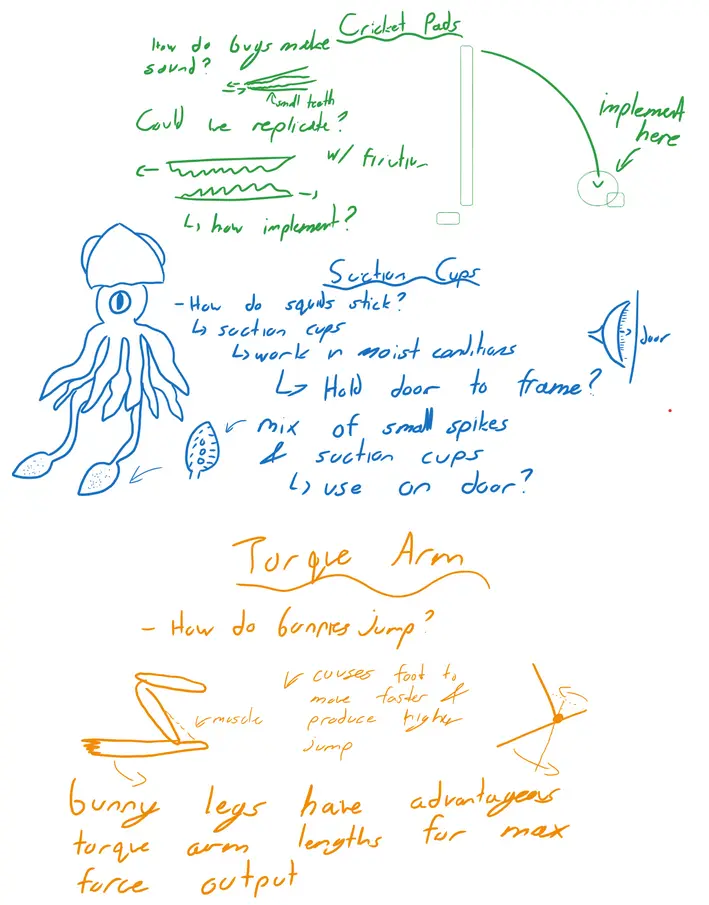 Cricket Pads
How do bugs make
sound?
small teeth
Could we replicate?
w/ friction
↳ how implement?
implement
here
Suction Cups
- How do squids stick?
↳ suction cups
↳ work in moist conditions
↳ Hold door to frame?
door
mix of small spikes
& suction cups
↳ use on door?
Torque Arm
- How do bunnies jump?
causes foot to
move faster &
produce higher
jump
muscle
bunny legs have advantageous
torque arm lengths for max
force output